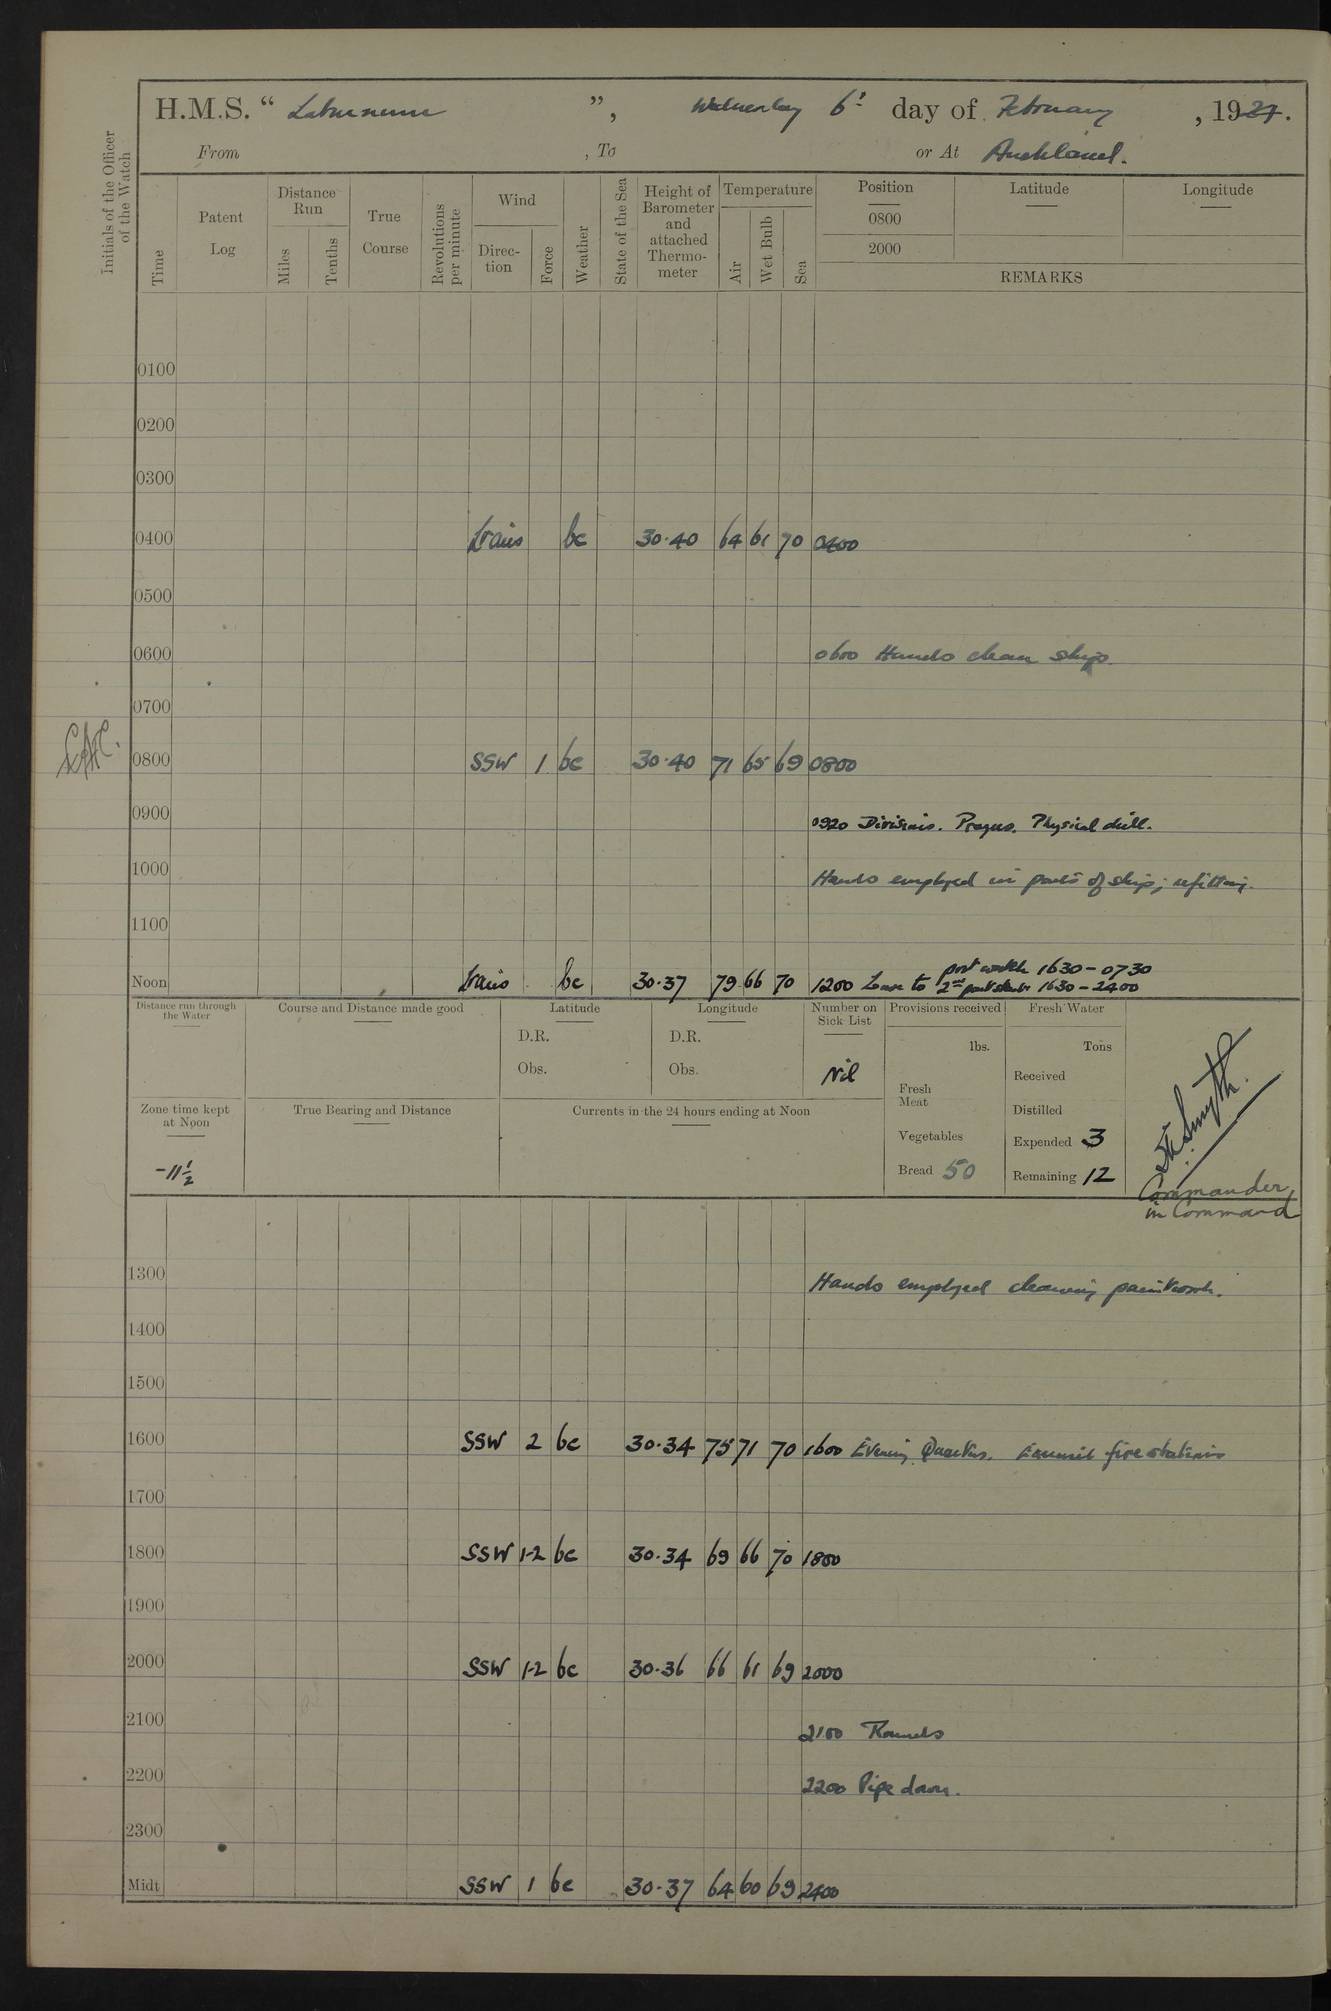 H.M.S. “ Laburnum ”, Wednesday 6th day of February , 1924.
From , To or At Auckland.
Initials of the Officer of the Watch
Time
Patent Log
Distance Run
Miles
Tenths
True Course
Revolutions per minute
Wind
Direc-tion
Force
Weather
State of the Sea
Height of Barometer and attached Thermo-meter
Temperature
Air
Wet Bulb
Sea
Position
Latitude
Longitude
0800
2000
REMARKS
0100
0200
0300
0400 Lt airs bc 30.40 64 61 70 0400
0500
0600 0600 Hands clean ship.
0700
0800 SSW 1 bc 30.40 71 65 69 0800
0900 0920 Divisions. Prayers. Physical drill.
1000 Hands employed in parts of ship; refitting.
1100
port watch 1630-0730
Noon Lt airs bc 30.37 79 66 70 1200 Leave to 2nd part starbd 1630-2400
Distance run through the Water
Course and Distance made good
Latitude
D.R.
Obs.
Longitude
D.R.
Obs.
Number on Sick List
Nil
Provisions received
lbs.
Fresh Meat
Vegetables
Bread 50
Fresh Water
Tons
Received
Distilled
Expended 3
Remaining 12
Smyth.
Commander
in Command
Zone time kept at Noon
-11 1/2
True Bearing and Distance
Currents in the 24 hours ending at Noon
1300 Hands employed cleaning paintwork.
1400
1500
1600 SSW 2 bc 30.34 75 71 70 1600 Evening Quarters. Exercised fire stations
1700
1800 SSW 1-2 bc 30.34 69 66 70 1800
1900
2000 SSW 1-2 bc 30.36 66 61 69 2000
2100 2100 Rounds
2200 2200 Pipe down.
2300
Midt SSW 1 bc 30.37 64 60 69 2400